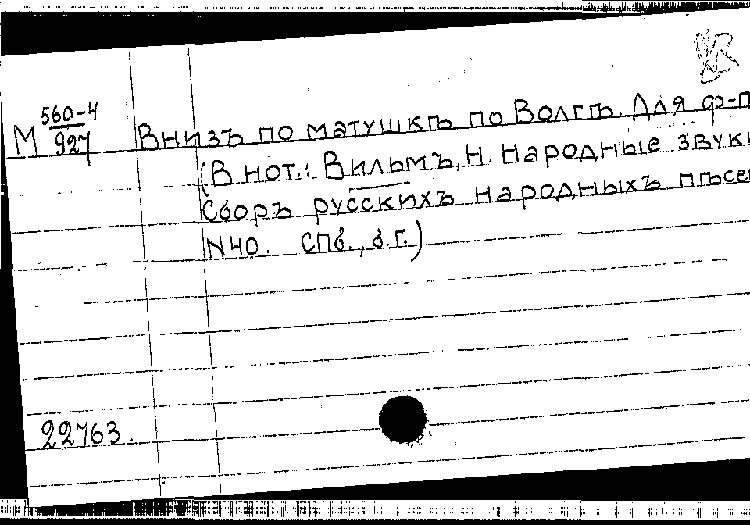 560-4
М 927 Внизъ по матушкѣ по Волгѣ. Для ф-п
(В нот.: Вильмъ, Н. Народные звуки
Сборъ русскихъ народныхъ пѣсе
N40. СПб., б.г.)
22763.